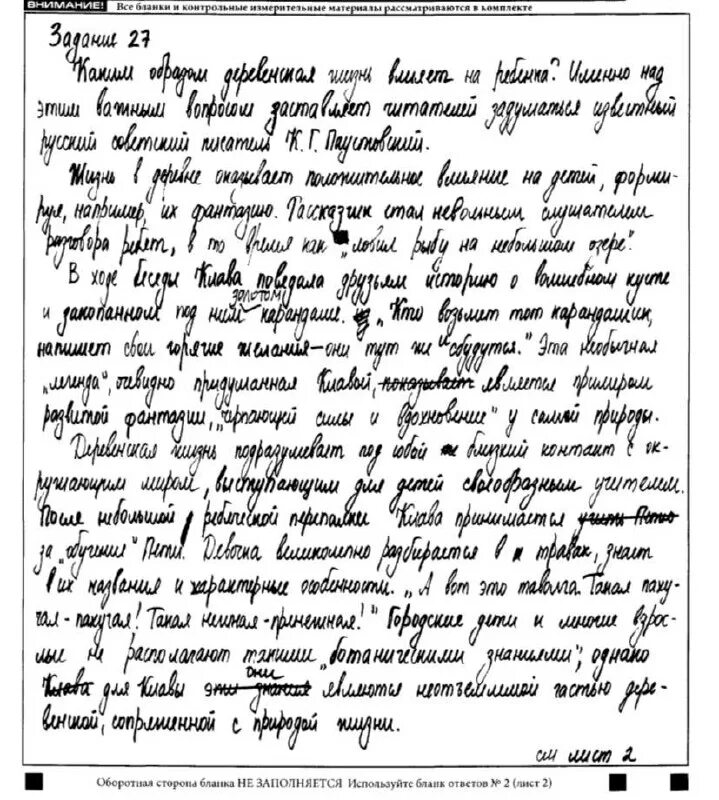 ВНИМАНИЕ! Все бланки и контрольные измерительные материалы рассматриваются в комплекте
Задание 27
Каким образом деревенская жизнь влияет на ребенка? Именно над
этим важным вопросом заставляет читателей задуматься известный
русский советский писатель К. Г. Паустовский.
Жизнь в деревне оказывает положительное влияние на детей, форми-
руя, например, их фантазию. Рассказчик стал невольным слушателем
разговора ребят, в то время как "ловил рыбу на небольшом озере".
В ходе беседы Клава поведала друзьям историю о волшебном кусте
и закопанном под ним золотом карандаше. "Кто возьмит тот карандашик,
напишет свои горячие желания – они тут же сбудутся." Эта необычная
"легенда", очевидно придуманная Клавой, показывает является примером
развитой фантазии, "черпающей силы и вдохновение" у самой природы.
Деревенская жизнь подразумевает под собой близкий контакт с ок-
ружающим миром, выступающим для детей своеобразным учителем.
После небольшой ребяческой перепалки Клава принимается учить Петю
за "обучение" Пети. Девочка великолепно разбирается в травах, знает
их названия и характерные особенности. "А вот это таволга. Такая паху-
чая-пахучая! Такая нежная-пренежная!" Городские дети и многие взрос-
лые не располагают такими "ботаническими знаниями", однако
Клава для Клавы эти знания они являются неотъемлимой частью дере-
венской, сопряженной с природой жизни.
см лист 2
Оборотная сторона бланка НЕ ЗАПОЛНЯЕТСЯ Используйте бланк ответов № 2 (лист 2)